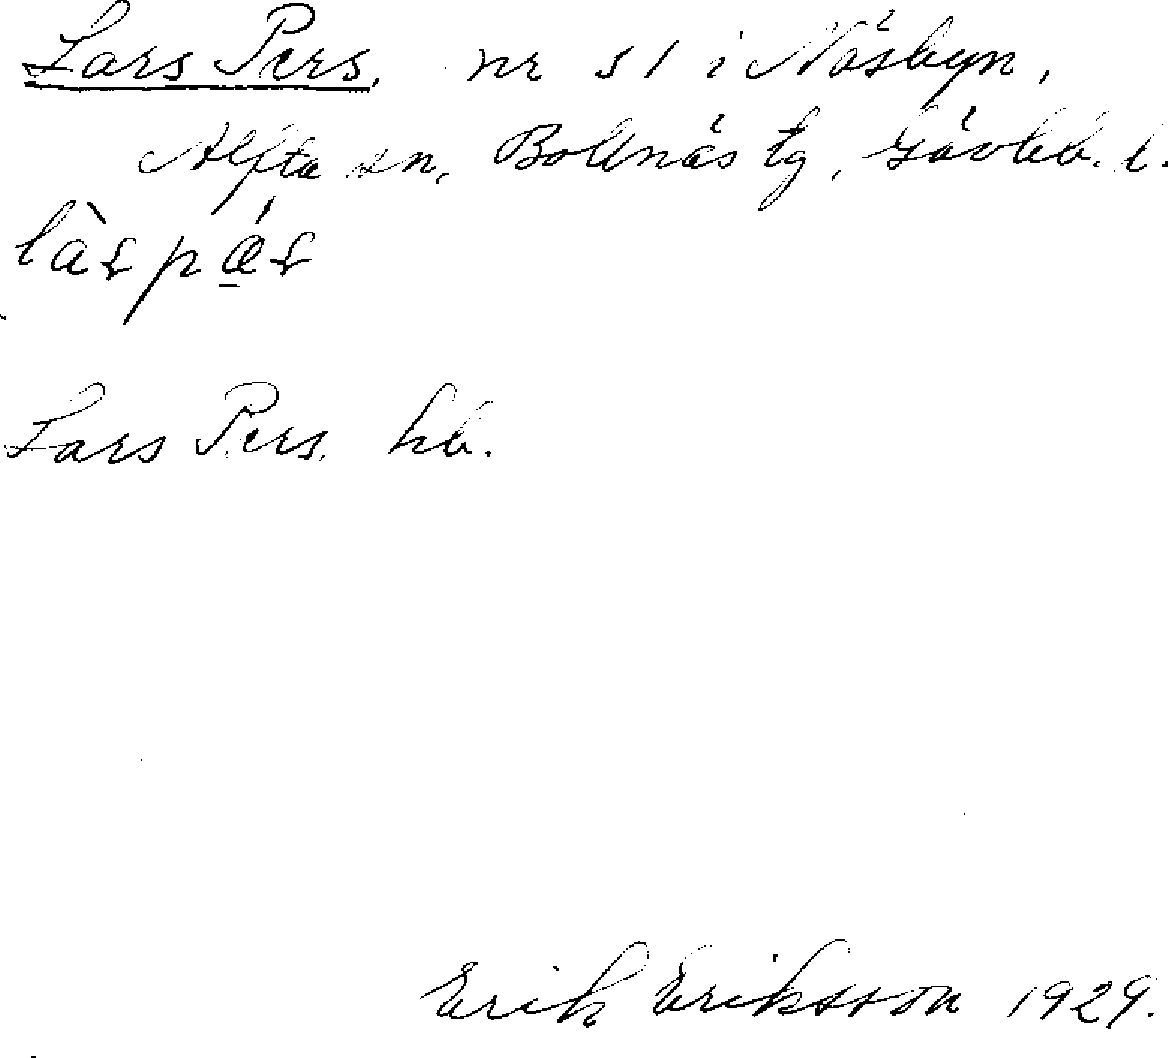 Lars Pers. nr 51 i Näsbyn,
Alfta sn, Bollnäs tg, Gävleb. l.
làs pǽ̲s
Lars Pers. hb.
Erik Eriksson 1929.